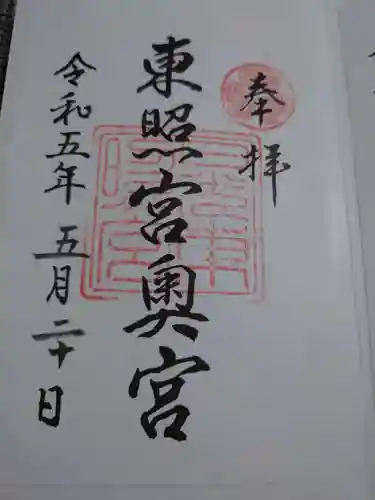 奉拝
東照宮奥宮
令和五年 五月二十日